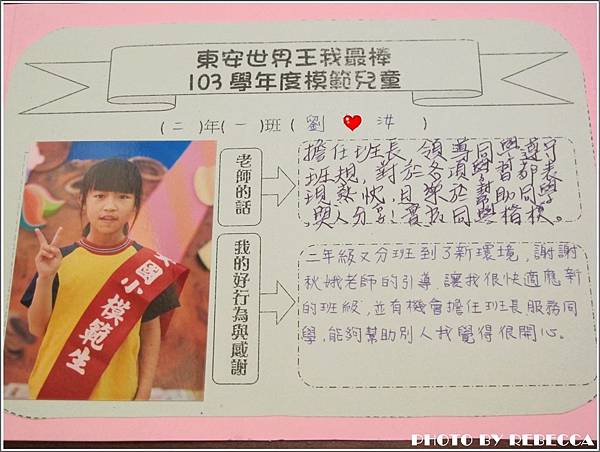 東安世界王我最棒
103學年度模範兒童
(二)年(一)班(劉 汝)
老師的話
擔任班長,領導同學遵守
班規,對於各項學習都表
現熱忱,且樂於幫助同學
與人分享!實為同學楷模。
我的好行為與感謝
二年級又分班到了新環境,謝謝
秋娥老師的引導,讓我很快適應新
的班級,並有機會擔任班長服務同
學,能夠幫助別人我覺得很開心。
國小模範生
PHOTO BY REBECCA